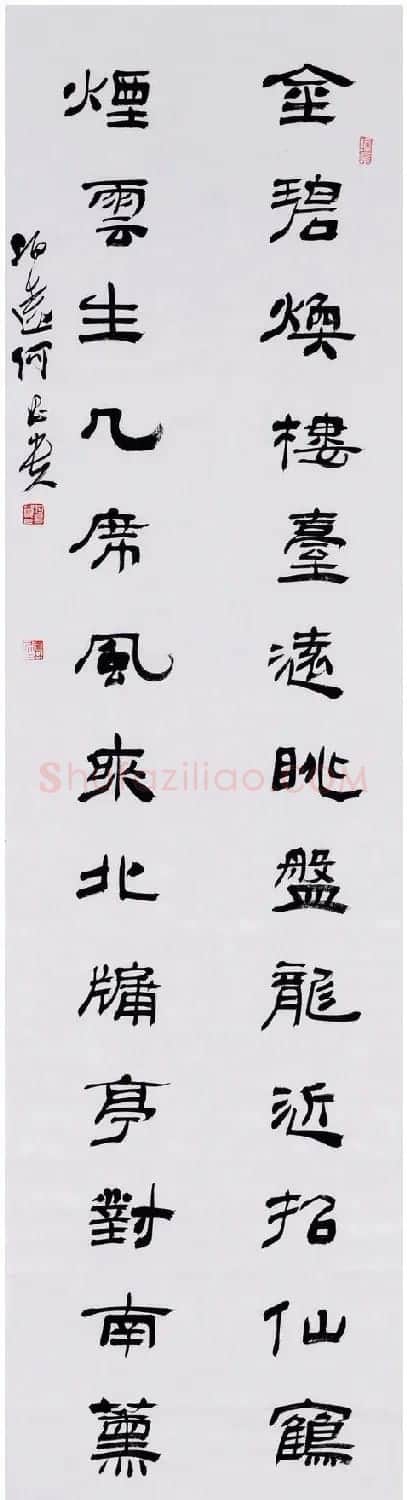 金碧煥樓臺遠眺盤龍近招仙鶴
煙雲生几席風來北牖亭對南薰
Shufaziliao.COM